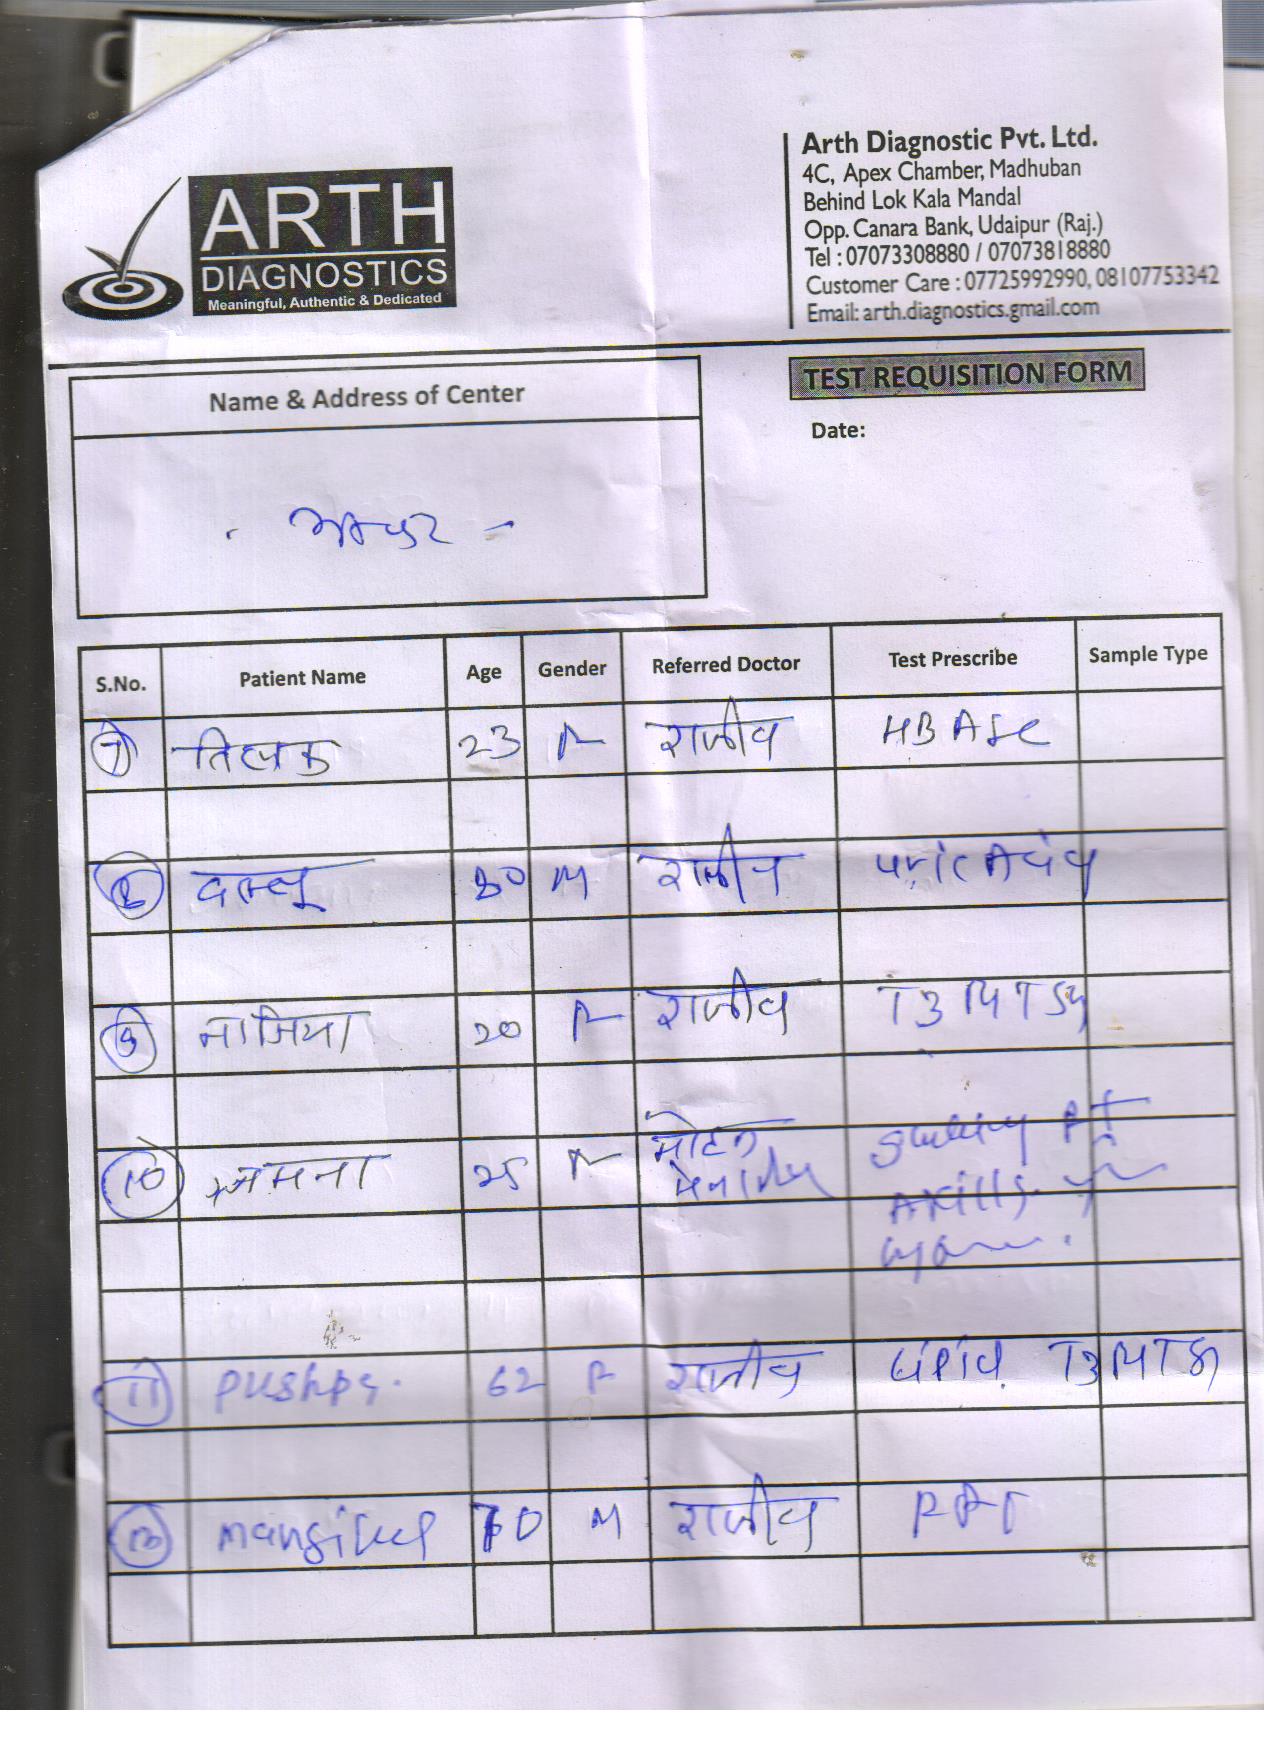 ARTH
DIAGNOSTICS
Meaningful, Authentic & Dedicated
Arth Diagnostic Pvt. Ltd.
4C, Apex Chamber, Madhuban
Behind Lok Kala Mandal
Opp. Canara Bank, Udaipur (Raj.)
Tel : 07073308880 / 07073818880
Customer Care : 07725992990, 08107753342
Email: arth.diagnostics.gmail.com
Name & Address of Center
TEST REQUISITION FORM
Date:
S.No. Patient Name Age Gender Referred Doctor Test Prescribe Sample Type
7 तिलक 23 F राजीव HBA1c
8 80 M राजीव uric Acid
9 नाजिया 20 F राजीव T3 T4 TSH
10 जमना 25 F मोहन
11 pushpa. 62 F राजीव Lipid T3 T4 TSH
12 mangilal 70 M राजीव